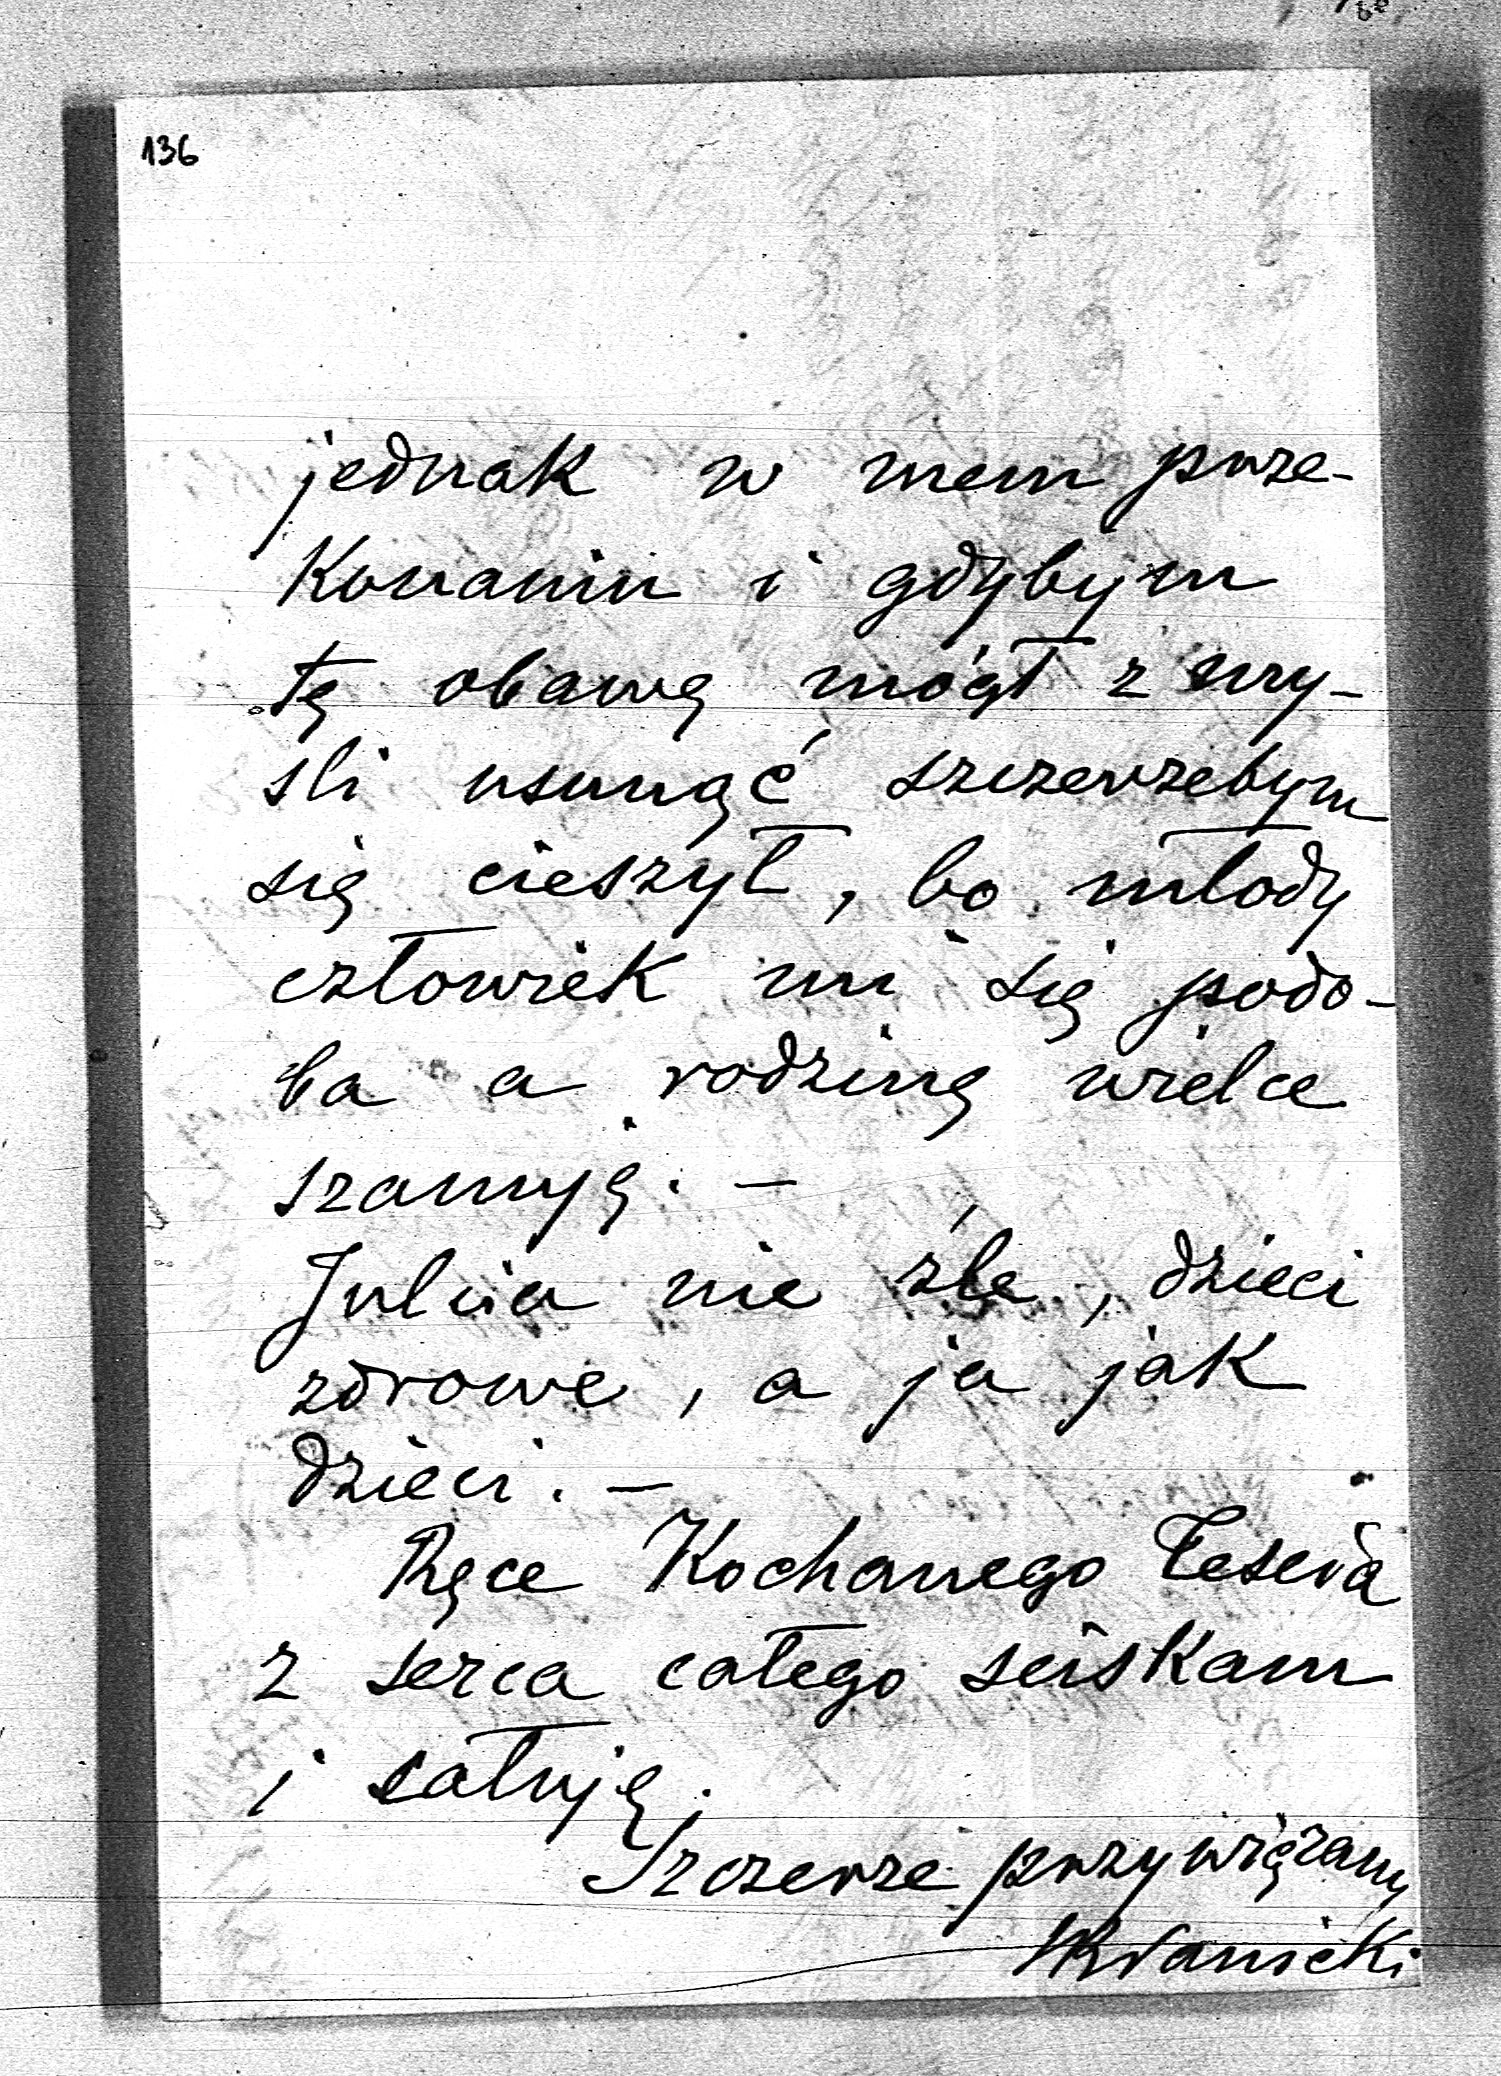 136
jednak w mem prze-
konaniu i gdybym
tę obawę mógł z my-
śli usunąć szczerzebym
się cieszył, bo młody
człowiek mi się podo-
ba a rodzinę wielce
szanuję. —
Julcia nie źle, dzieci
zdrowe, a ja jak
dzieci. —
Ręce Kochanego Teścia
z serca całego ściskam
i całuję.
Szczerze przywiązany
WBranicki